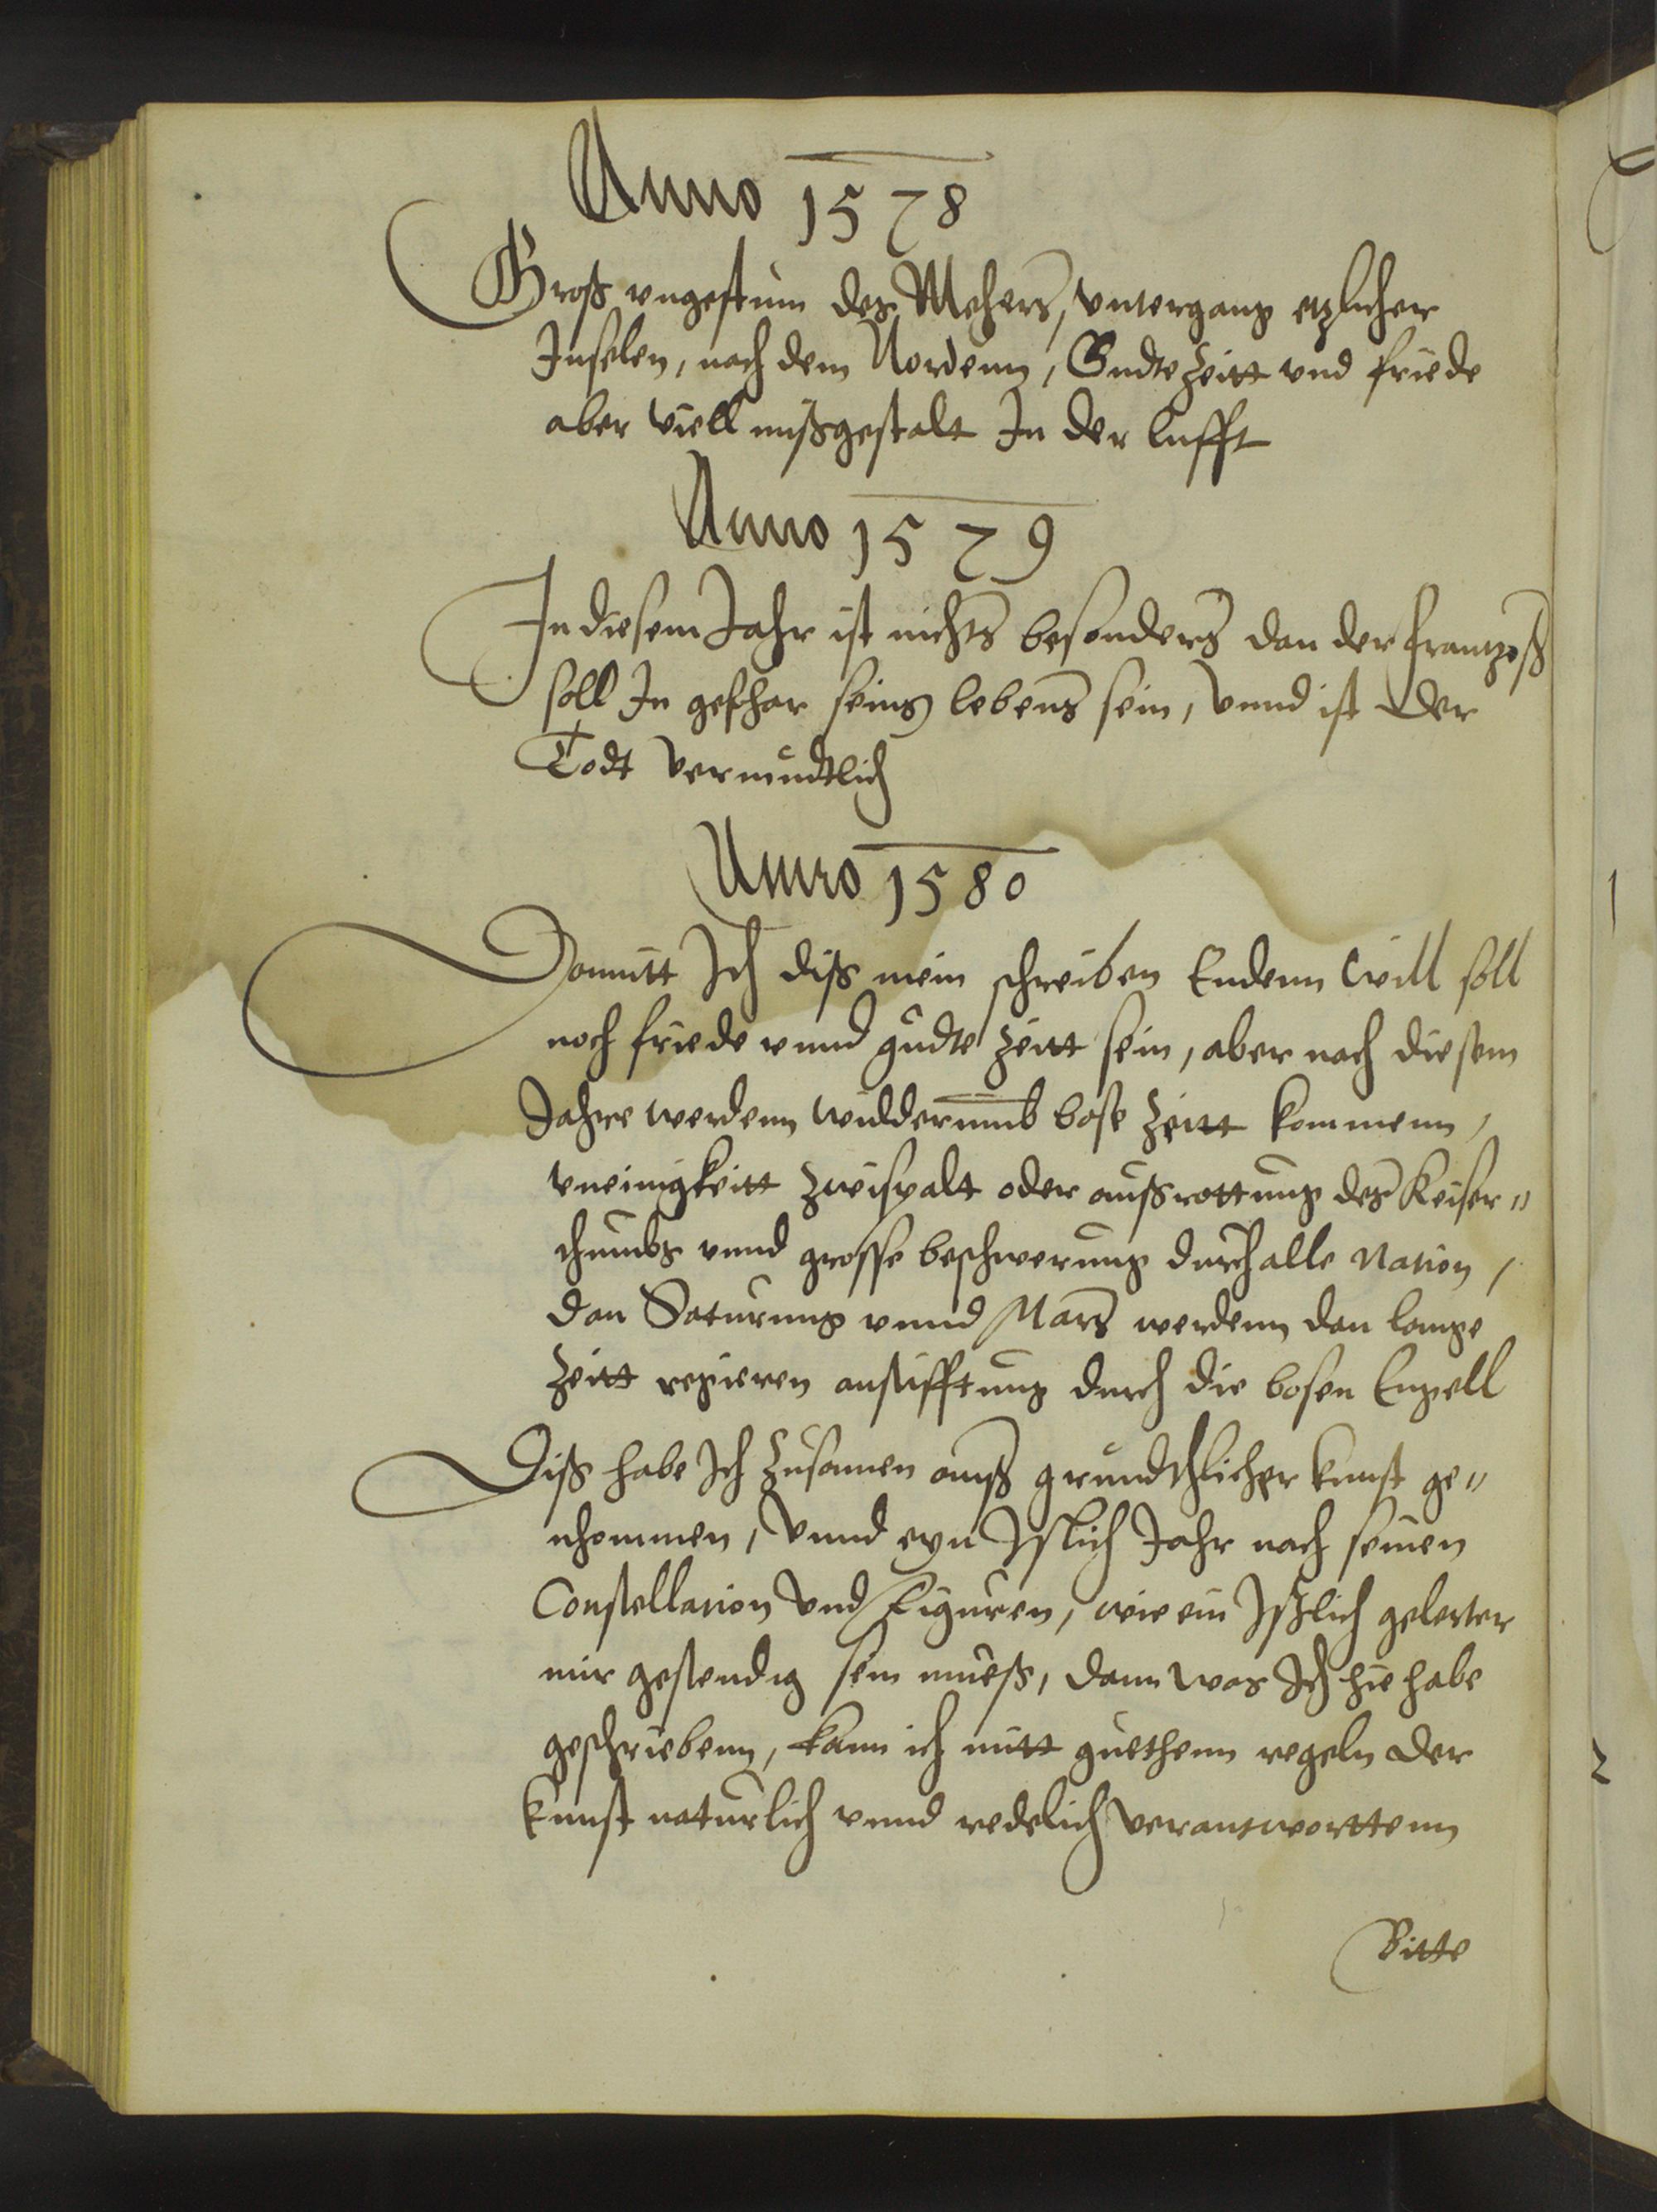 Anno 1578
Groß vngestum des Mehers, vntergang etzlicher
Inselen, nach dem Nordenn, Gudte zeitt vnd friede
aber viell mißgestalt In der lufft
Anno 1579
In diesem Jahr ist nichts besonders dan der frantzoß
soll In gefhar seins lebens sein, vnnd ist der
Todt vermudtlich
Anno 1580
Domitt Ich diß mein schreiben Endenn will soll
noch friede vnnd gudte zeitt sein, aber nach diesem
Jahre werdenn widderumb bose zeitt kommenn,
vneinigkeitt zweispalt oder außrottung des Keiser"
thumbs vnnd grosse beschwerung durch alle Nation,
dan Saturnus vnnd Mars werdenn dan lange
zeitt regieren anstifftung durch die bosen Engell
Diß habe Ich zusamen auß grundthlicher kunst ge"
nhommen, vnnd eyn Islich Jahr nach seinen
Constellation vnd Figuren, wie ein Ißlich gelerter
mir gestendig sein mueß, dann was Ich hie habe
geschriebenn, kann ich mitt guethenn regeln der
kunst naturlich vnnd redelich verantworttenn
Bitte